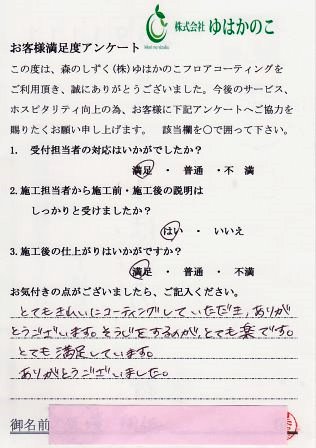 株式会社 ゆはかのこ
お客様満足度アンケート
この度は、森のしずく(株)ゆはかのこフロアコーティングを
ご利用頂き、誠にありがとうございました。今後のサービス、
ホスピタリティ向上の為、お客様に下記アンケートへご協力を
賜りたくお願い申し上げます。 該当欄を○で囲って下さい。
1. 受付担当者の対応はいかがでしたか?
満足 ・ 普通 ・不 満
2.施工担当者から施工前・施工後の説明は
しっかりと受けましたか?
はい ・ いいえ
3.施工後の仕上がりはいかがですか?
満足 ・ 普通 ・ 不満
お気付きの点がございましたら、ご記入ください。
とてもきれいにコーティングしていただき、ありが
とうございます。そうじをするのが、とても楽です。
とても満足しています。
ありがとうございました。
御名前